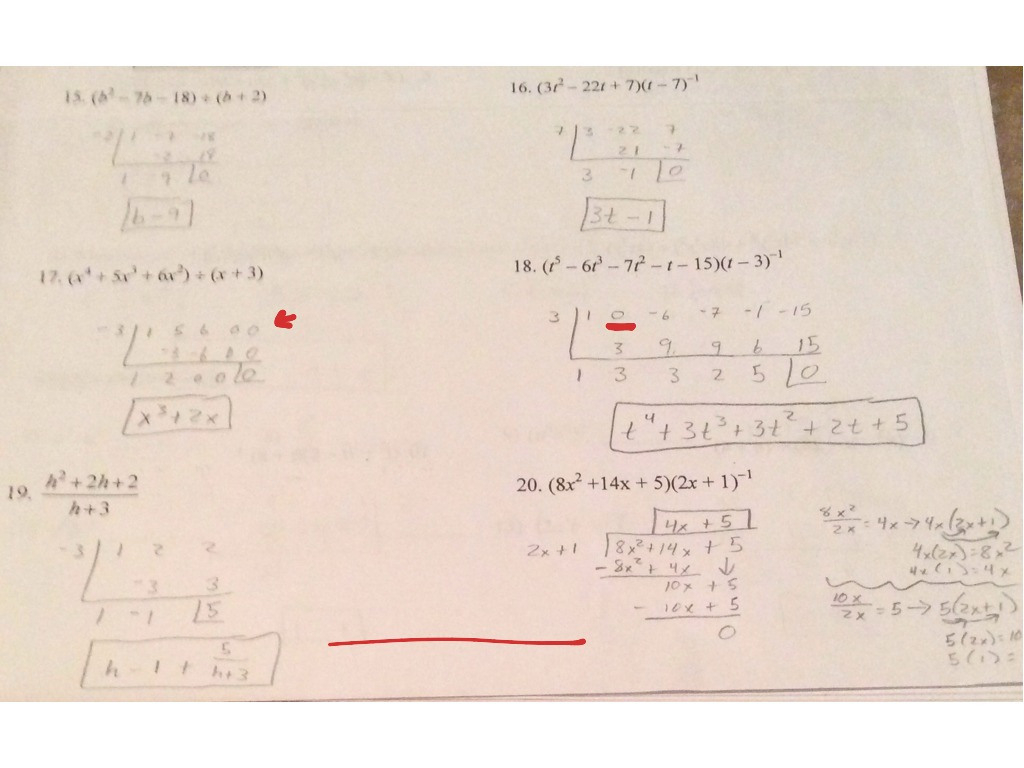 15. (b² − 7b − 18) ÷ (b + 2)
-2 | 1 -7 -18
-2 18
1 -9 | 0
b - 9
16. (3t² − 22t + 7)(t − 7)⁻¹
7 | 3 -22 7
21 -7
3 -1 | 0
3t - 1
17. (x⁴ + 5x³ + 6x²) ÷ (x + 3)
-3 | 1 5 6 0 0
-3 -6 0 0
1 2 0 0 | 0
x³ + 2x
18. (t⁵ − 6t³ − 7t² − t − 15)(t − 3)⁻¹
3 | 1 0 -6 -7 -1 -15
3 9 9 6 15
1 3 3 2 5 | 0
t⁴ + 3t³ + 3t² + 2t + 5
19. h² + 2h + 2
h + 3
-3 | 1 2 2
-3 3
1 -1 | 5
h - 1 + 5
h+3
20. (8x² +14x + 5)(2x + 1)⁻¹
4x + 5
2x + 1 8x² + 14x + 5
- 8x² + 4x ↓
10x + 5
- 10x + 5
0
8x²
2x = 4x → 4x(2x+1)
4x(2x) = 8x²
4x(1) = 4x
10x
2x = 5 → 5(2x+1)
5(2x) = 10
5(1) =